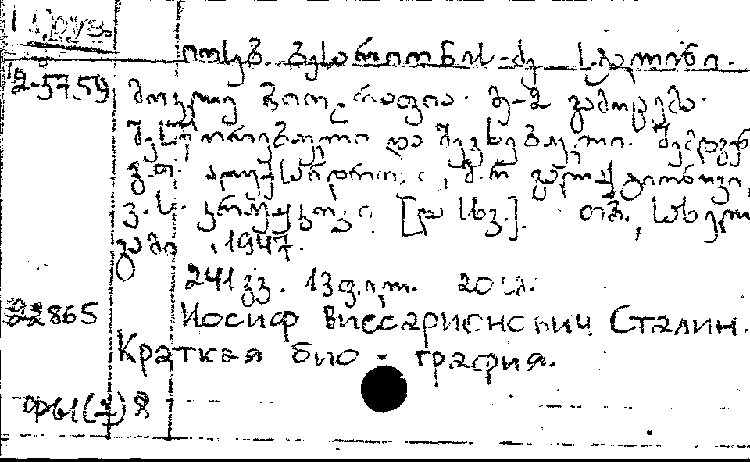 1 Груз.
იოსებ ბესარიონის-ძე სტალინი.
2-5759 მოკლე ბიოგრაფია. მე-2 გამოცემა.
შესწორებული და შევსებული. შემდგენ
გ.თ. ალექსანდროვი, მ.რ. გალაქტიონოვი,
ვ.ს. კრუჟკოვი [და სხვ.]. თბ., სახელ
გამი, 1947.
241 გვ. 13 ფ.ილ. 20 სმ.
22865 Иосиф Виссарионович Сталин.
Краткая био-графия.